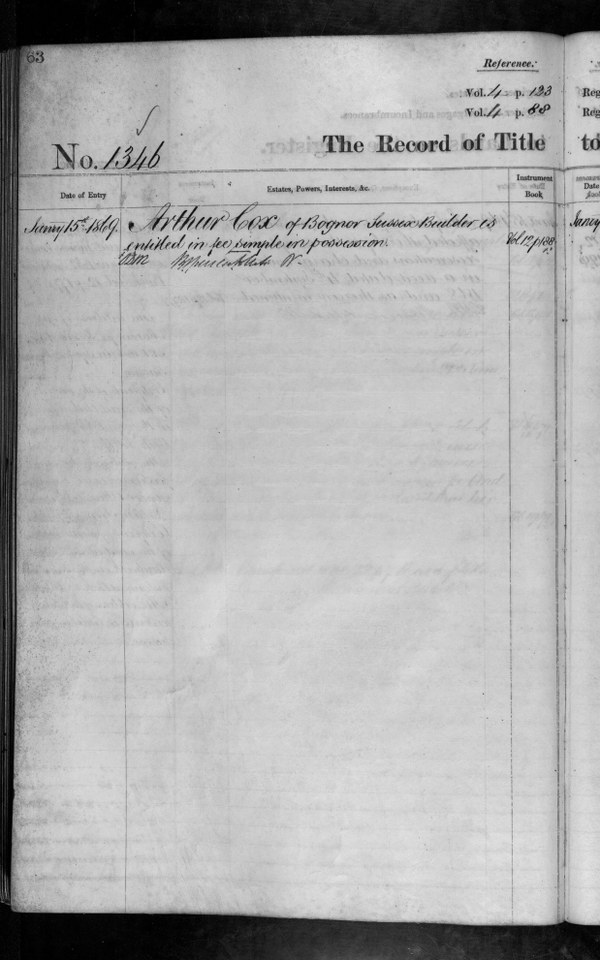 63
Reference.
Vol. 4 p. 123
Vol. 4 p. 88
No. 1346
The Record of Title to
Date of Entry
Estates, Powers, Interests, &c.
Instrument Book
Date
Reg
Reg
Jany 15th 1869.
Arthur Cox of Bognor Sussex Builder is
entitled in fee simple in possession.
Vol 12 p 188
Jany